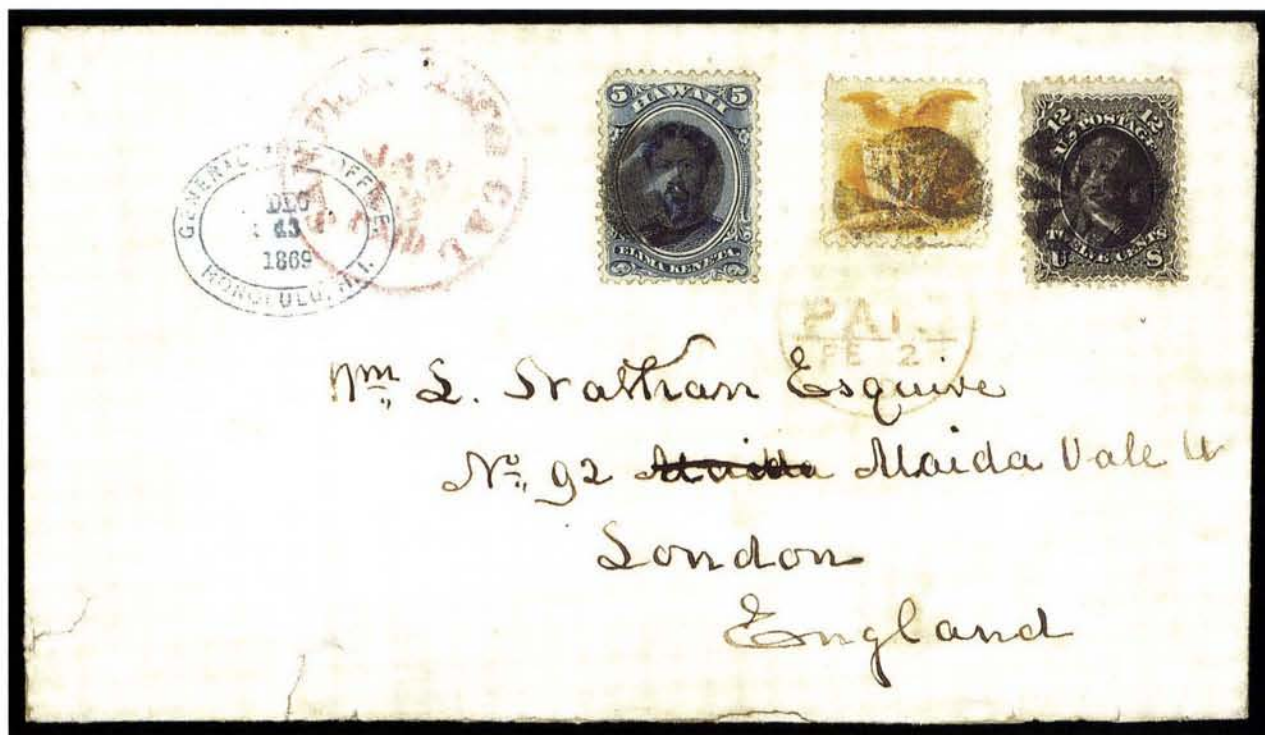 GENERAL POST OFFICE.
DEC
13
1869
HONOLULU, H.I.
CAL
JAN
5 HAWAII 5
ELIMA KENETA.
12 12
U.S. POSTAGE
TWELVE CENTS
U S
PAID
FE 2
Wm. L. Nathan Esquire
No. 92 Maida Maida Vale W
London
England